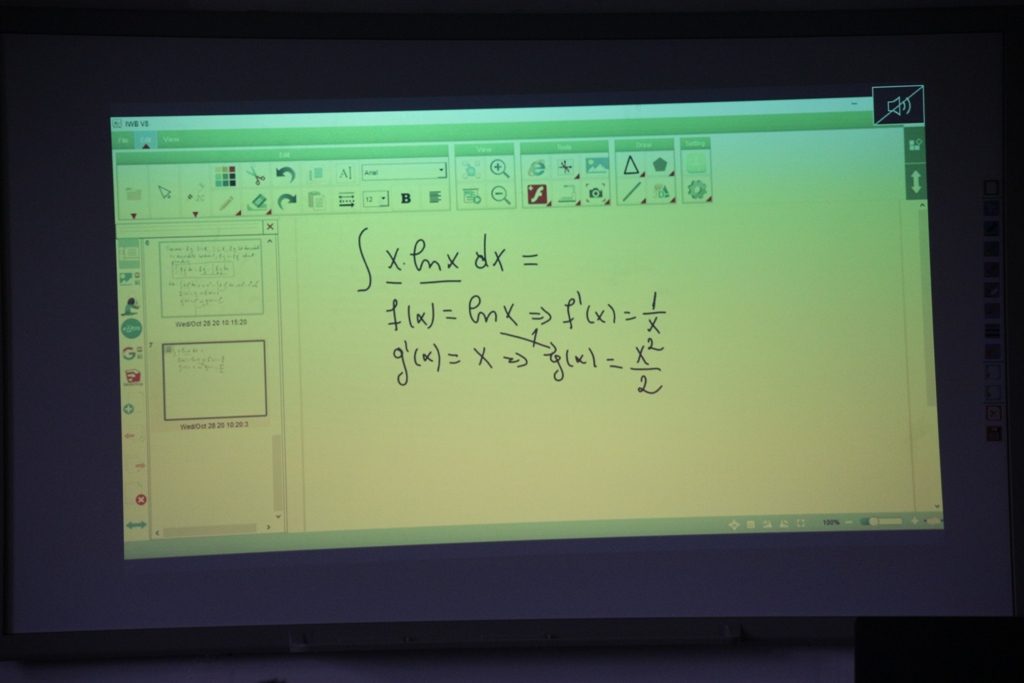 IWB V5
File Edit View
Edit View Tools Draw Setting
A Arial
12 B
6
∫ x·lnx dx =
f(x) = lnx ⇒ f'(x) = 1/x
g'(x) = x ⇒ g(x) = x²/2
Wed/Oct 28 20 10:15:20
7
Wed/Oct 28 20 10:20:3
100%